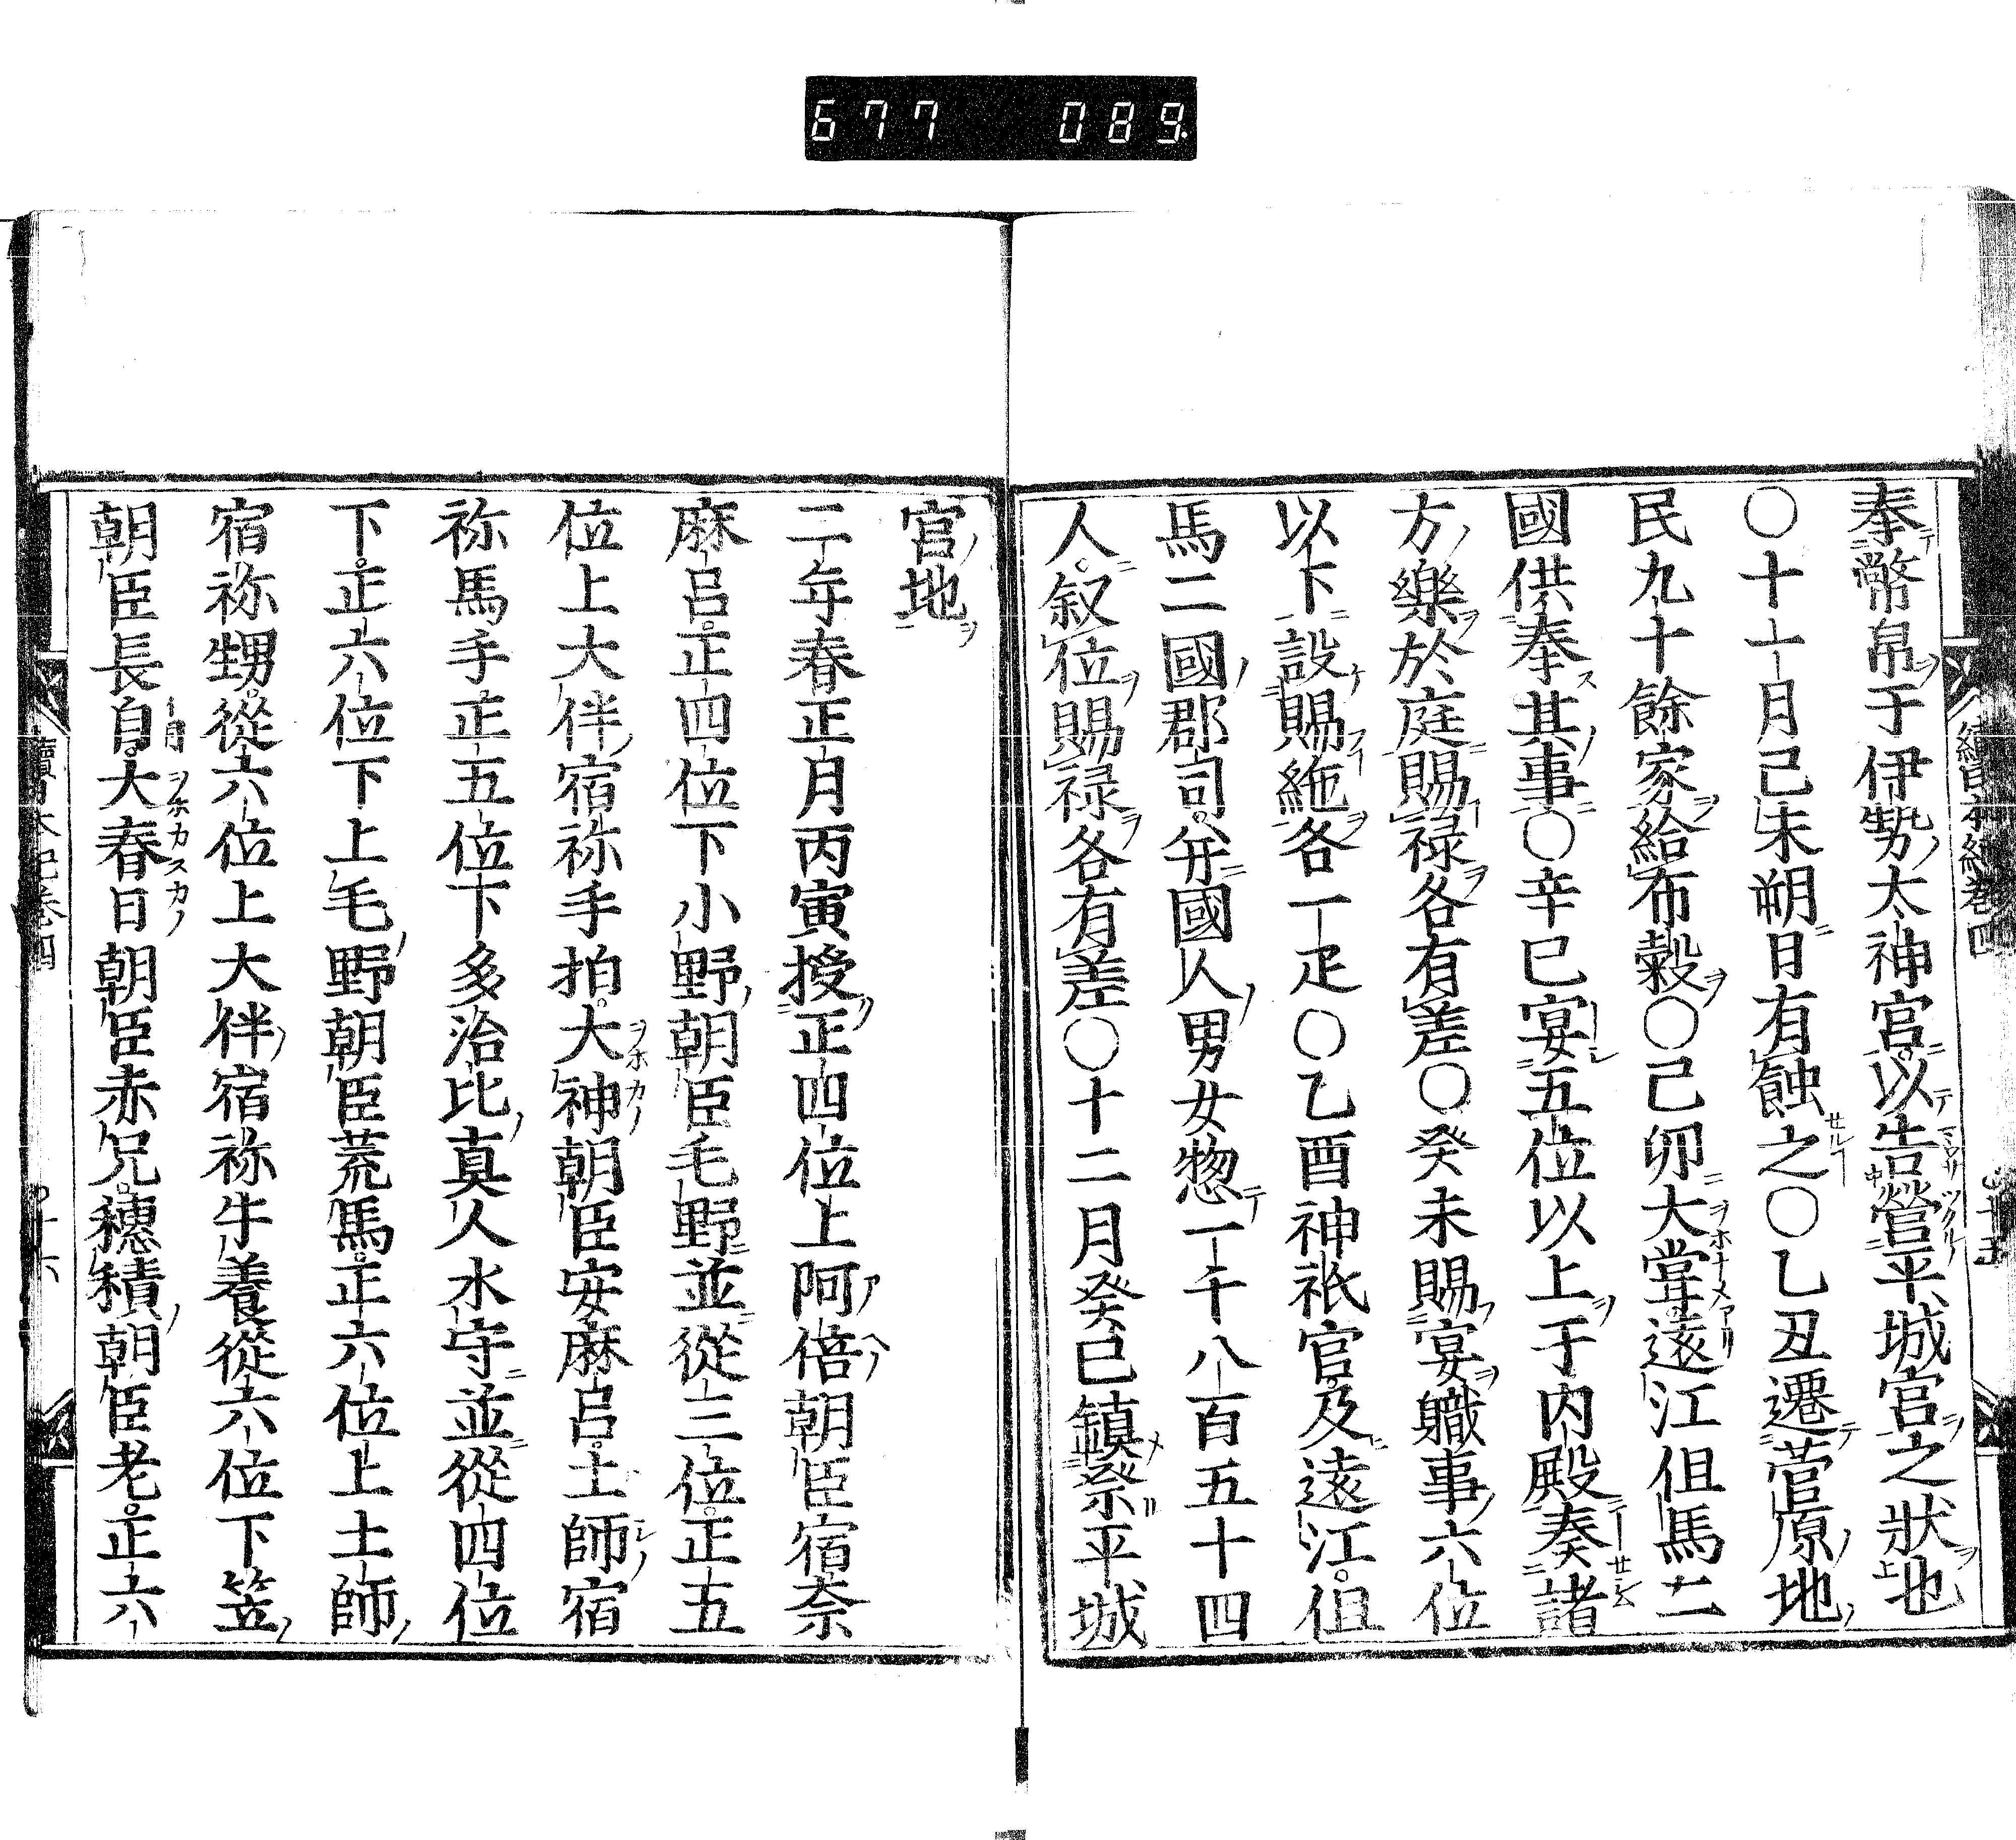 677 089.
續日本紀卷四
奉幣帛于伊勢太神宮以告營平城宮之狀地
〇十一月己未朔日有蝕之〇乙丑遷菅原地
民九十餘家給布穀〇己卯大甞遠江但馬二
國供奉其事〇辛巳宴五位以上于内殿奏諸
方樂於庭賜祿各有差〇癸未賜宴職事六位
以下設賜絁各一疋〇乙酉神祇官及遠江但
馬二國郡司并國人男女惣一千八百五十四
人叙位賜祿各有差〇十二月癸巳鎮祭平城
宮地
二年春正月丙寅授正四位上阿倍朝臣宿奈
麻呂正四位下小野朝臣毛野並從三位正五
位上大伴宿祢手拍大神朝臣安麻呂土師宿
祢馬手正五位下多治比真人水守並從四位
下正六位下上毛野朝臣荒馬正六位上土師
宿祢甥從六位上大伴宿祢牛養從六位下笠
朝臣長自大春日朝臣赤兄穗積朝臣老正六
續日本紀卷四